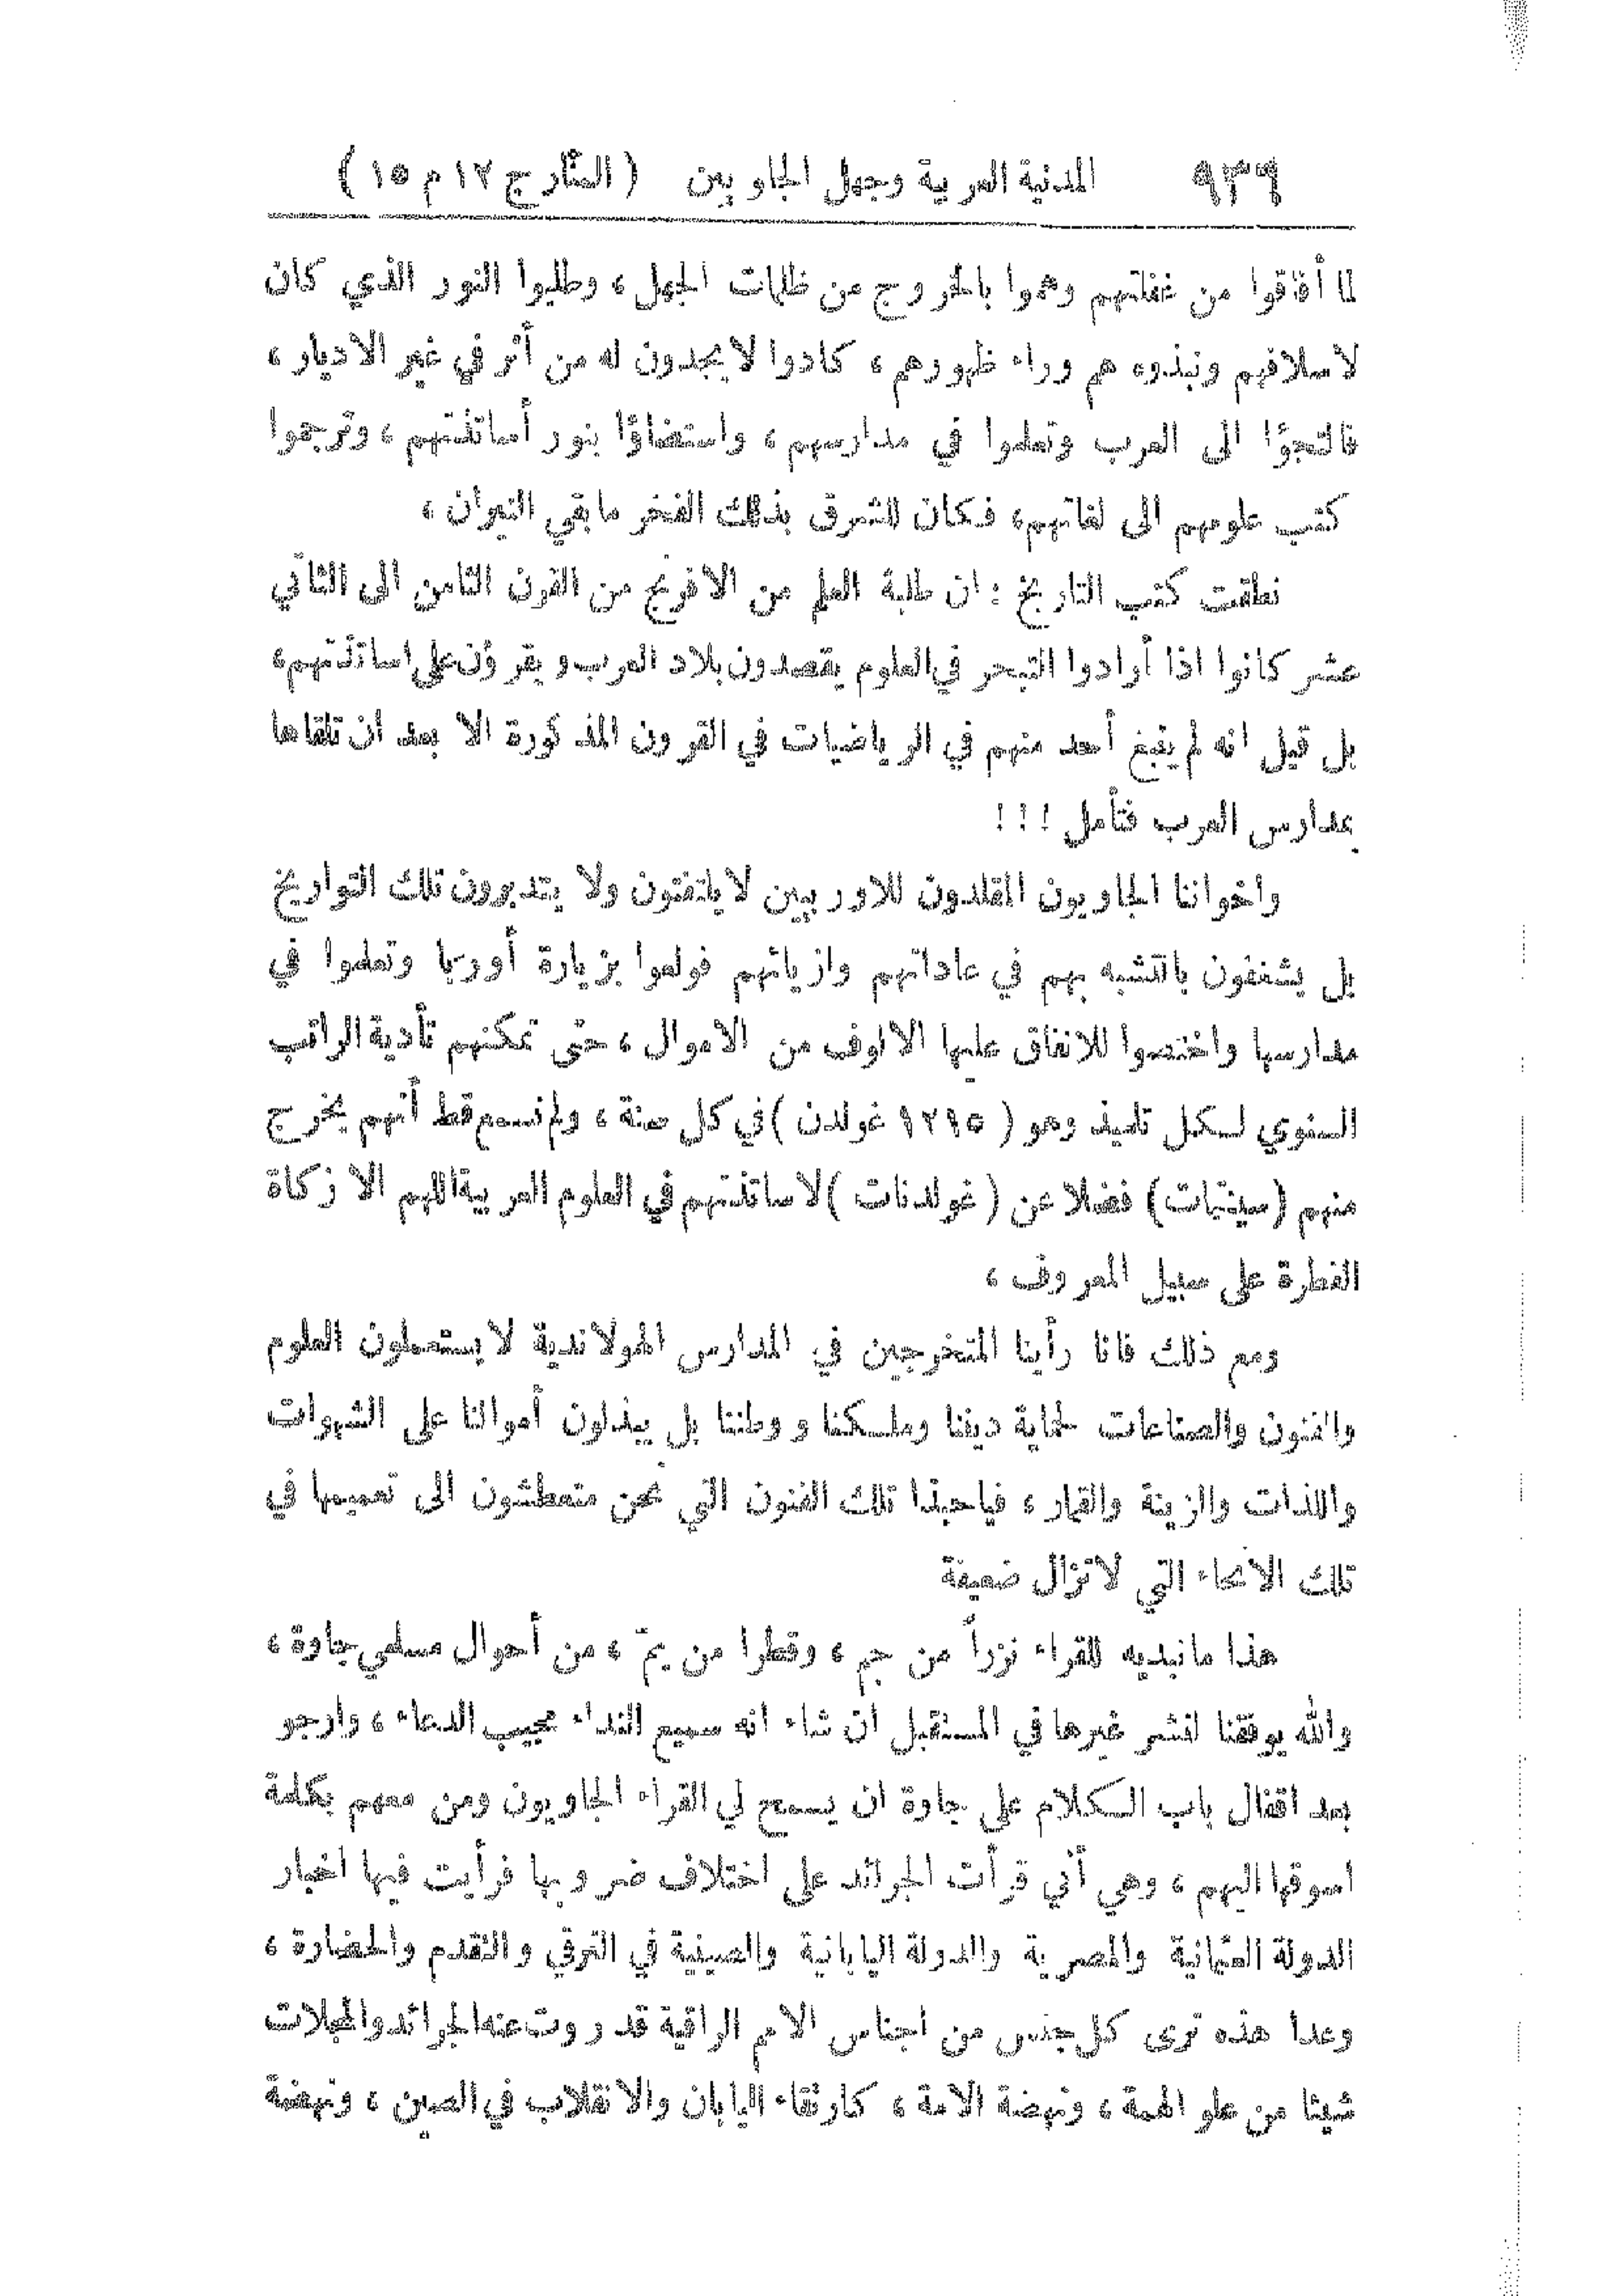 ٩٣٦ المدنية العربية وجهل الجاويين (المنار ج ١٢ م ١٥)
لما أفاقوا من غفلتهم وهموا بالخروج من ظلمات الجهل، وطلبوا النور الذي كان
لاسلافهم ونبذوه هم وراء ظهورهم، كادوا لا يجدون له من أثر في غير الاديار،
فالتجؤا الى العرب وتعلموا في مدارسهم، واستضاؤا بنور أساتذتهم، وترجموا
كتب علومهم الى لغاتهم، فكان للشرق بذلك الفخر ما بقي النيران،
نطقت كتب التاريخ: ان طلبة العلم من الافرنج من القرن الثامن الى الثاني
عشر كانوا اذا أرادوا التبحر في العلوم يقصدون بلاد العرب ويقرؤن على اساتذتهم،
بل قيل انه لم ينبغ أحد منهم في الرياضيات في القرون المذكورة الا بعد ان تلقاها
بمدارس العرب فتأمل!!!
واخواننا الجاويون المقلدون للاوربيين لا يلتفتون ولا يتدبرون تلك التواريخ
بل يشغفون بالتشبه بهم في عاداتهم وازيائهم فولعوا بزيارة أوربا وتعلموا في
مدارسها واختصوا للانفاق عليها الالوف من الاموال، حتى تمكنهم تأدية الراتب
السنوي لكل تلميذ وهو (١٢١٥ غولدن) في كل سنة، ولم نسمع قط أنهم يخرج
منهم (سينتيات) فضلا عن (غولدنات) لاساتذتهم في العلوم العربية اللهم الا زكاة
الفطرة على سبيل المعروف،
ومع ذلك فانا رأينا المتخرجين في المدارس الهولاندية لا يستعملون العلوم
والفنون والصناعات لحماية ديننا وملكنا ووطننا بل يبذلون أموالنا على الشهوات
واللذات والزينة والقمار، فياحبذا تلك الفنون التي نحن متعطشون الى تعميمها في
تلك الانحاء التي لا تزال ضعيفة
هذا ما نبديه للقراء نزراً من جم، وقطرا من يمّ، من أحوال مسلمي جاوة،
والله يوفقنا لنشر غيرها في المستقبل ان شاء انه سميع النداء مجيب الدعاء، وارجو
بعد اقفال باب الكلام على جاوة ان يسمح لي القراء الجاويون ومن معهم بكلمة
اسوقها اليهم، وهي أني قرأت الجرائد على اختلاف ضروبها فرأيت فيها اخبار
الدولة العثمانية والمصرية والدولة اليابانية والصينية في الترقي والتقدم والحضارة،
وعدا هذه ترى كل جنس من اجناس الامم الراقية قد روت عنه الجرائد والمجلات
شيئا من علو الهمة، ونهضة الامة، كارتقاء اليابان والانقلاب في الصين، ونهضة